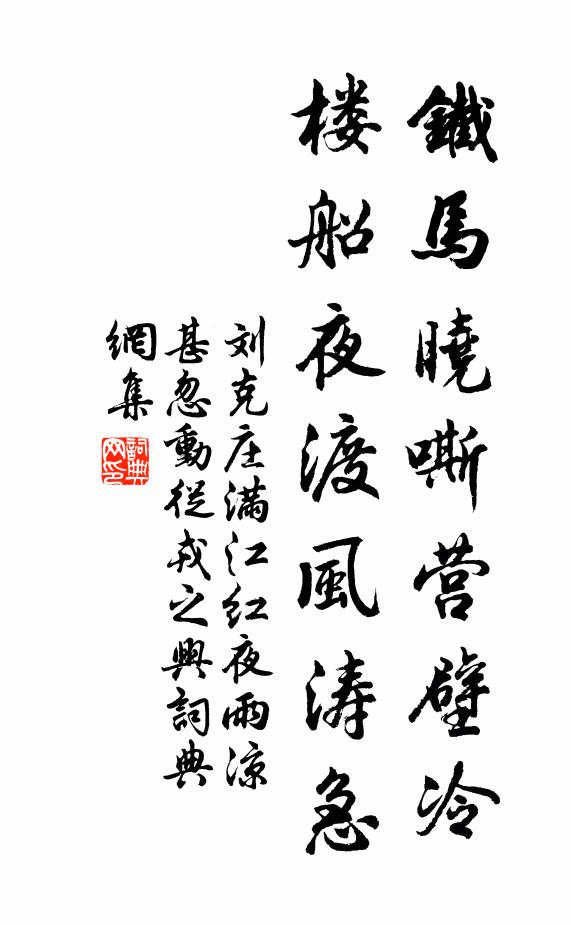 鐵馬曉嘶营壁冷
楼船夜渡風涛急
刘克庄满江红夜雨凉
甚忽動從戎之興詞典
網集
詞典
网印